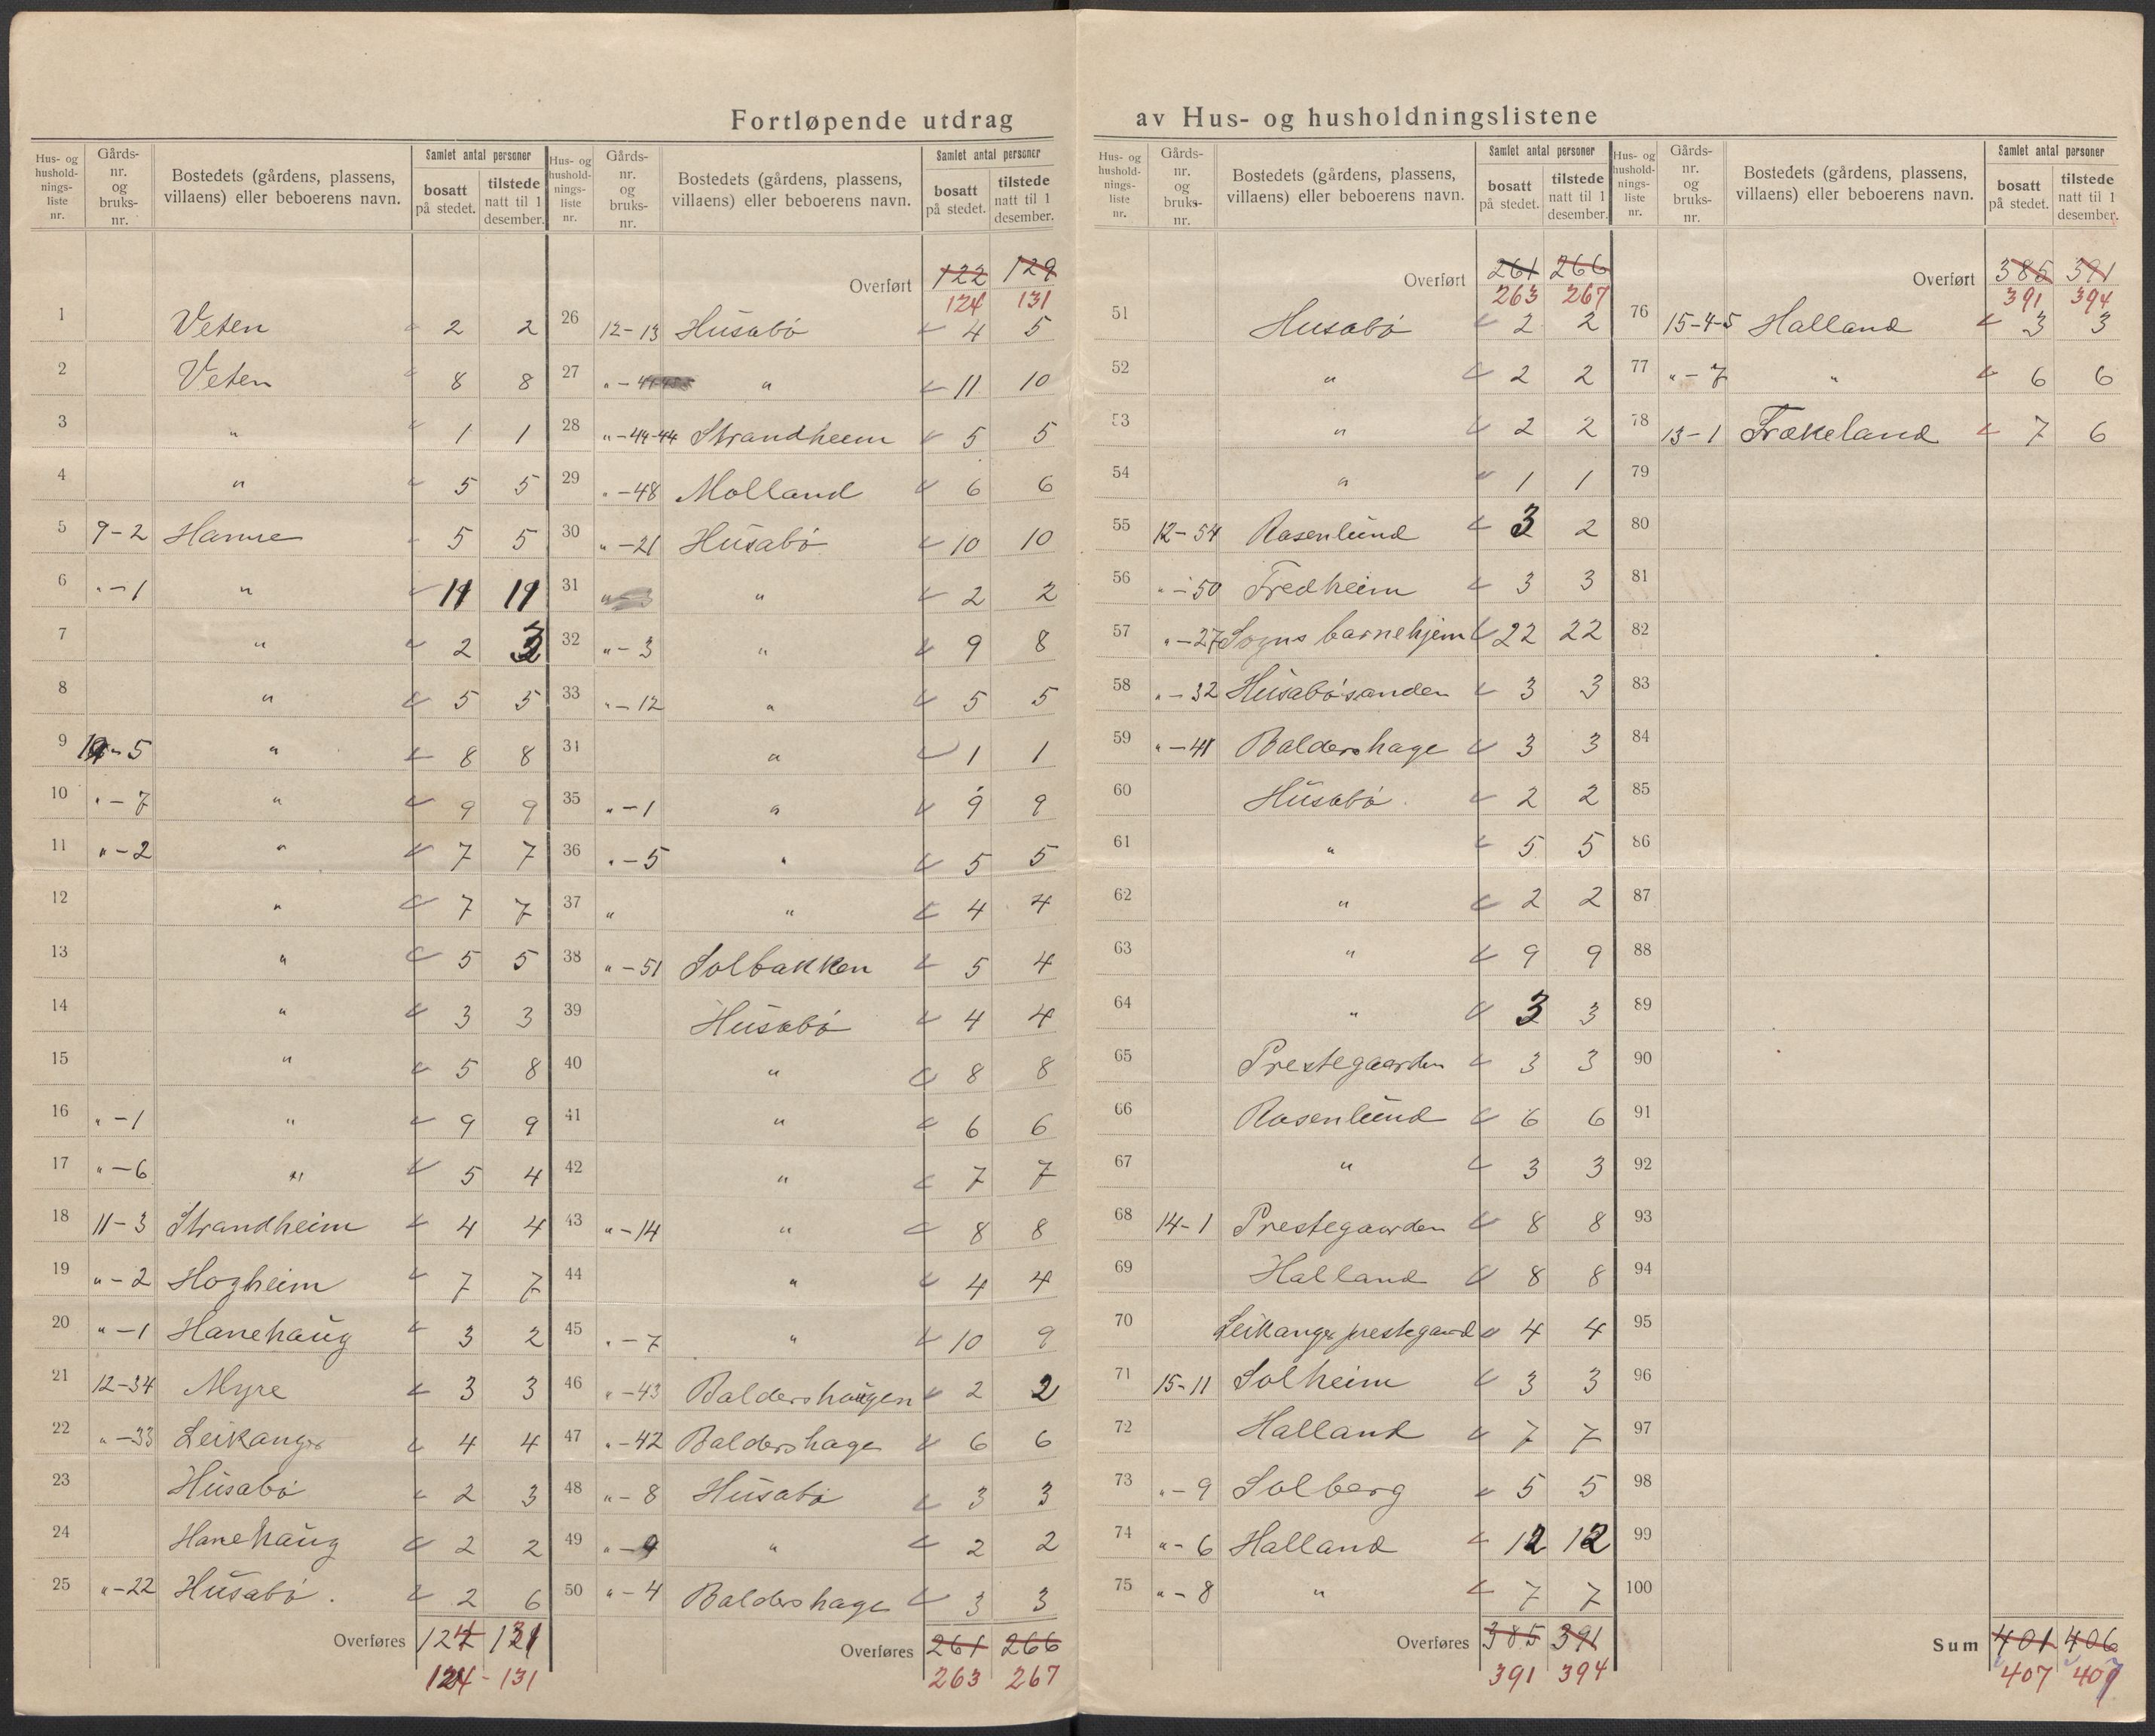 Fortløpende utdrag av Hus- og husholdningslistene
Hus- og husholdnings- liste nr. Gårds- nr. og bruks- nr. Bostedets (gårdens, plassens, villaens) eller beboerens navn. Samlet antal personer bosatt på stedet. tilstede natt til 1 desember.
1 Veten 2 2
2 Veten 8 8
3 " 1 1
4 " 5 5
5 9-2 Hamre 5 5
6 "-1 " 11 11
7 " 2 3
8 " 5 5
9 10-5 " 8 8
10 "-7 " 9 9
11 "-2 " 7 7
12 " 7 7
13 " 5 5
14 " 3 3
15 " 5 8
16 "-1 " 9 9
17 "-6 " 5 4
18 11-3 Strandheim 4 4
19 "-2 Hogheim 7 7
20 "-1 Hanehaug 3 2
21 12-34 Myre 3 3
22 "-33 Leikanger 4 4
23 Husabø 2 3
24 Hanehaug 2 2
25 "-22 Husabø. 2 6
Overføres 124 131
124-131
Hus- og husholdnings- liste nr. Gårds- nr. og bruks- nr. Bostedets (gårdens, plassens, villaens) eller beboerens navn. Samlet antal personer bosatt på stedet. tilstede natt til 1 desember.
Overført 122 129
124 131
26 12-13 Husabø 4 5
27 " 11 10
28 "-44-44 Strandheim 5 5
29 "-48 Molland 6 6
30 "-21 Husabø 10 10
31 "-3 " 2 2
32 "-3 " 9 8
33 "-12 " 5 5
34 " 1 1
35 "-1 " 9 9
36 "-5 " 5 5
37 " " 4 4
38 "-51 Solbakken 5 4
39 Husabø 4 4
40 " 8 8
41 " 6 6
42 " 7 7
43 "-14 " 8 8
44 " 4 4
45 "-7 " 10 9
46 "-43 Baldershaugen 2 2
47 "-42 Baldershage 6 6
48 "-8 Husabø 3 3
49 "-9 " 2 2
50 "-4 Baldershage 3 3
Overføres 261 266
263 267
Hus- og husholdnings- liste nr. Gårds- nr. og bruks- nr. Bostedets (gårdens, plassens, villaens) eller beboerens navn. Samlet antal personer bosatt på stedet. tilstede natt til 1 desember.
Overført 261 266
263 267
51 Husabø 2 2
52 " 2 2
53 " 2 2
54 " 1 1
55 12-54 Rosenlund 3 2
56 "-50 Fredheim 3 3
57 "-27 Sogns barnehjem 22 22
58 "-32 Husabøsanden 3 3
59 "-41 Baldershage 3 3
60 Husabø. 2 2
61 " 5 5
62 " 2 2
63 " 9 9
64 " 3 3
65 Prestegaarden 3 3
66 Rosenlund 6 6
67 " 3 3
68 14-1 Prestegaarden 8 8
69 Halland 8 8
70 Leikanger prestegaard 4 4
71 15-11 Solheim 3 3
72 Halland 7 7
73 "-9 Solberg 5 5
74 "-6 Halland 12 12
75 "-8 " 7 7
Overføres 385 391
391 394
Hus- og husholdnings- liste nr. Gårds- nr. og bruks- nr. Bostedets (gårdens, plassens, villaens) eller beboerens navn. Samlet antal personer bosatt på stedet. tilstede natt til 1 desember.
Overført 385 391
391 394
76 15-4-5 Halland 3 3
77 "-7 " 6 6
78 13-1 Frækeland 7 6
79
80
81
82
83
84
85
86
87
88
89
90
91
92
93
94
95
96
97
98
99
100
Sum 401 406
407 409